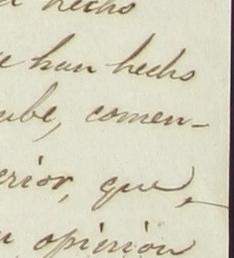 hechos
han hechs
ube, comen-
erior, que,
opinion